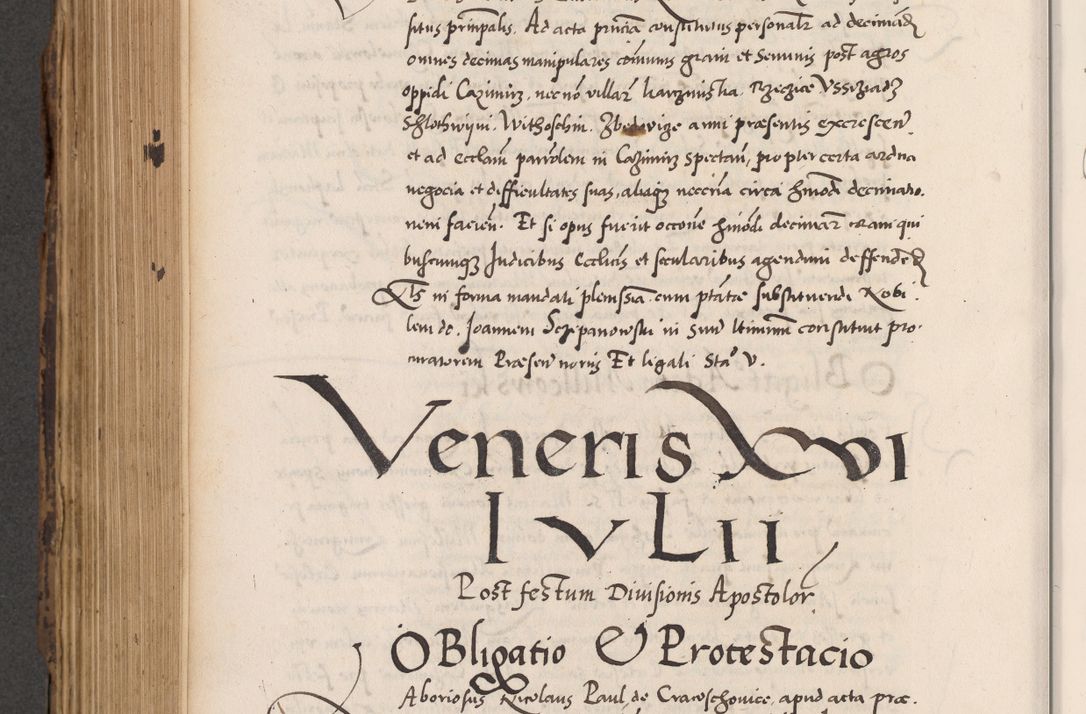 situs principalis. Ad acta pñcia constitutus personalr ad decimãd
omnes decimas manipulares coiuns grani et Seminis post agros
oppidi Cazimirz, necnõ villar harzmistia. Rzeczice Vssczadz
Szlothwyni. Withoschin. Zbedwize anni præsentis excrescen
et ad ecclam parrolem in Cazimirz spectan, propter certa ardua
negocia et difficultates suas, aliaqz necciria circa hmodi decimaro.
neni facien. Et si opus fuerit occone hmodi decimar eram qui
buscunqz Judicibus Ecclicis et secularibus agendum deffended
Qs in forma mandati plenissia cum ptate substituendi Nobi
lem do. Joannem Sczipanowski in Suum ltimum constituit pro.
curatorem Præsen noriis Et ligali Sta V.
Veneris XVI
IVLII
Post festum Divisionis Apostolor
OBligatio Et Protestacio
Aboriosus Nicolaus Paul, de Craioschouice, apud acta præ.